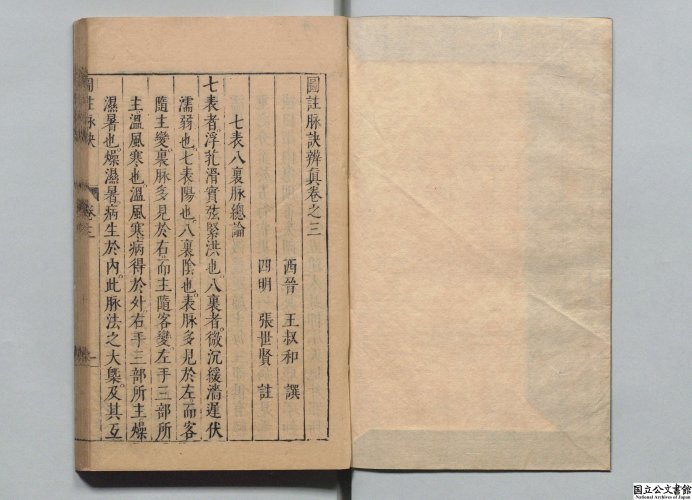 圖註脉訣辨眞卷之三
西晉 王叔和 譔
四明 張世賢 註
七表八裏脉總論
七表者浮芤滑實弦緊洪也八裏者微沉緩濇遲伏
濡弱也七表陽也八裏陰也表脉多見於左而客
隨主變裏脉多見於右而主隨客變左手三部所
主溫風寒也溫風寒病得於外右手三部所主燥
濕暑也燥濕暑病生於內此脉法之大槩及其互
圖註脉訣 卷之三 一
国立公文書館
National Archives of Japan